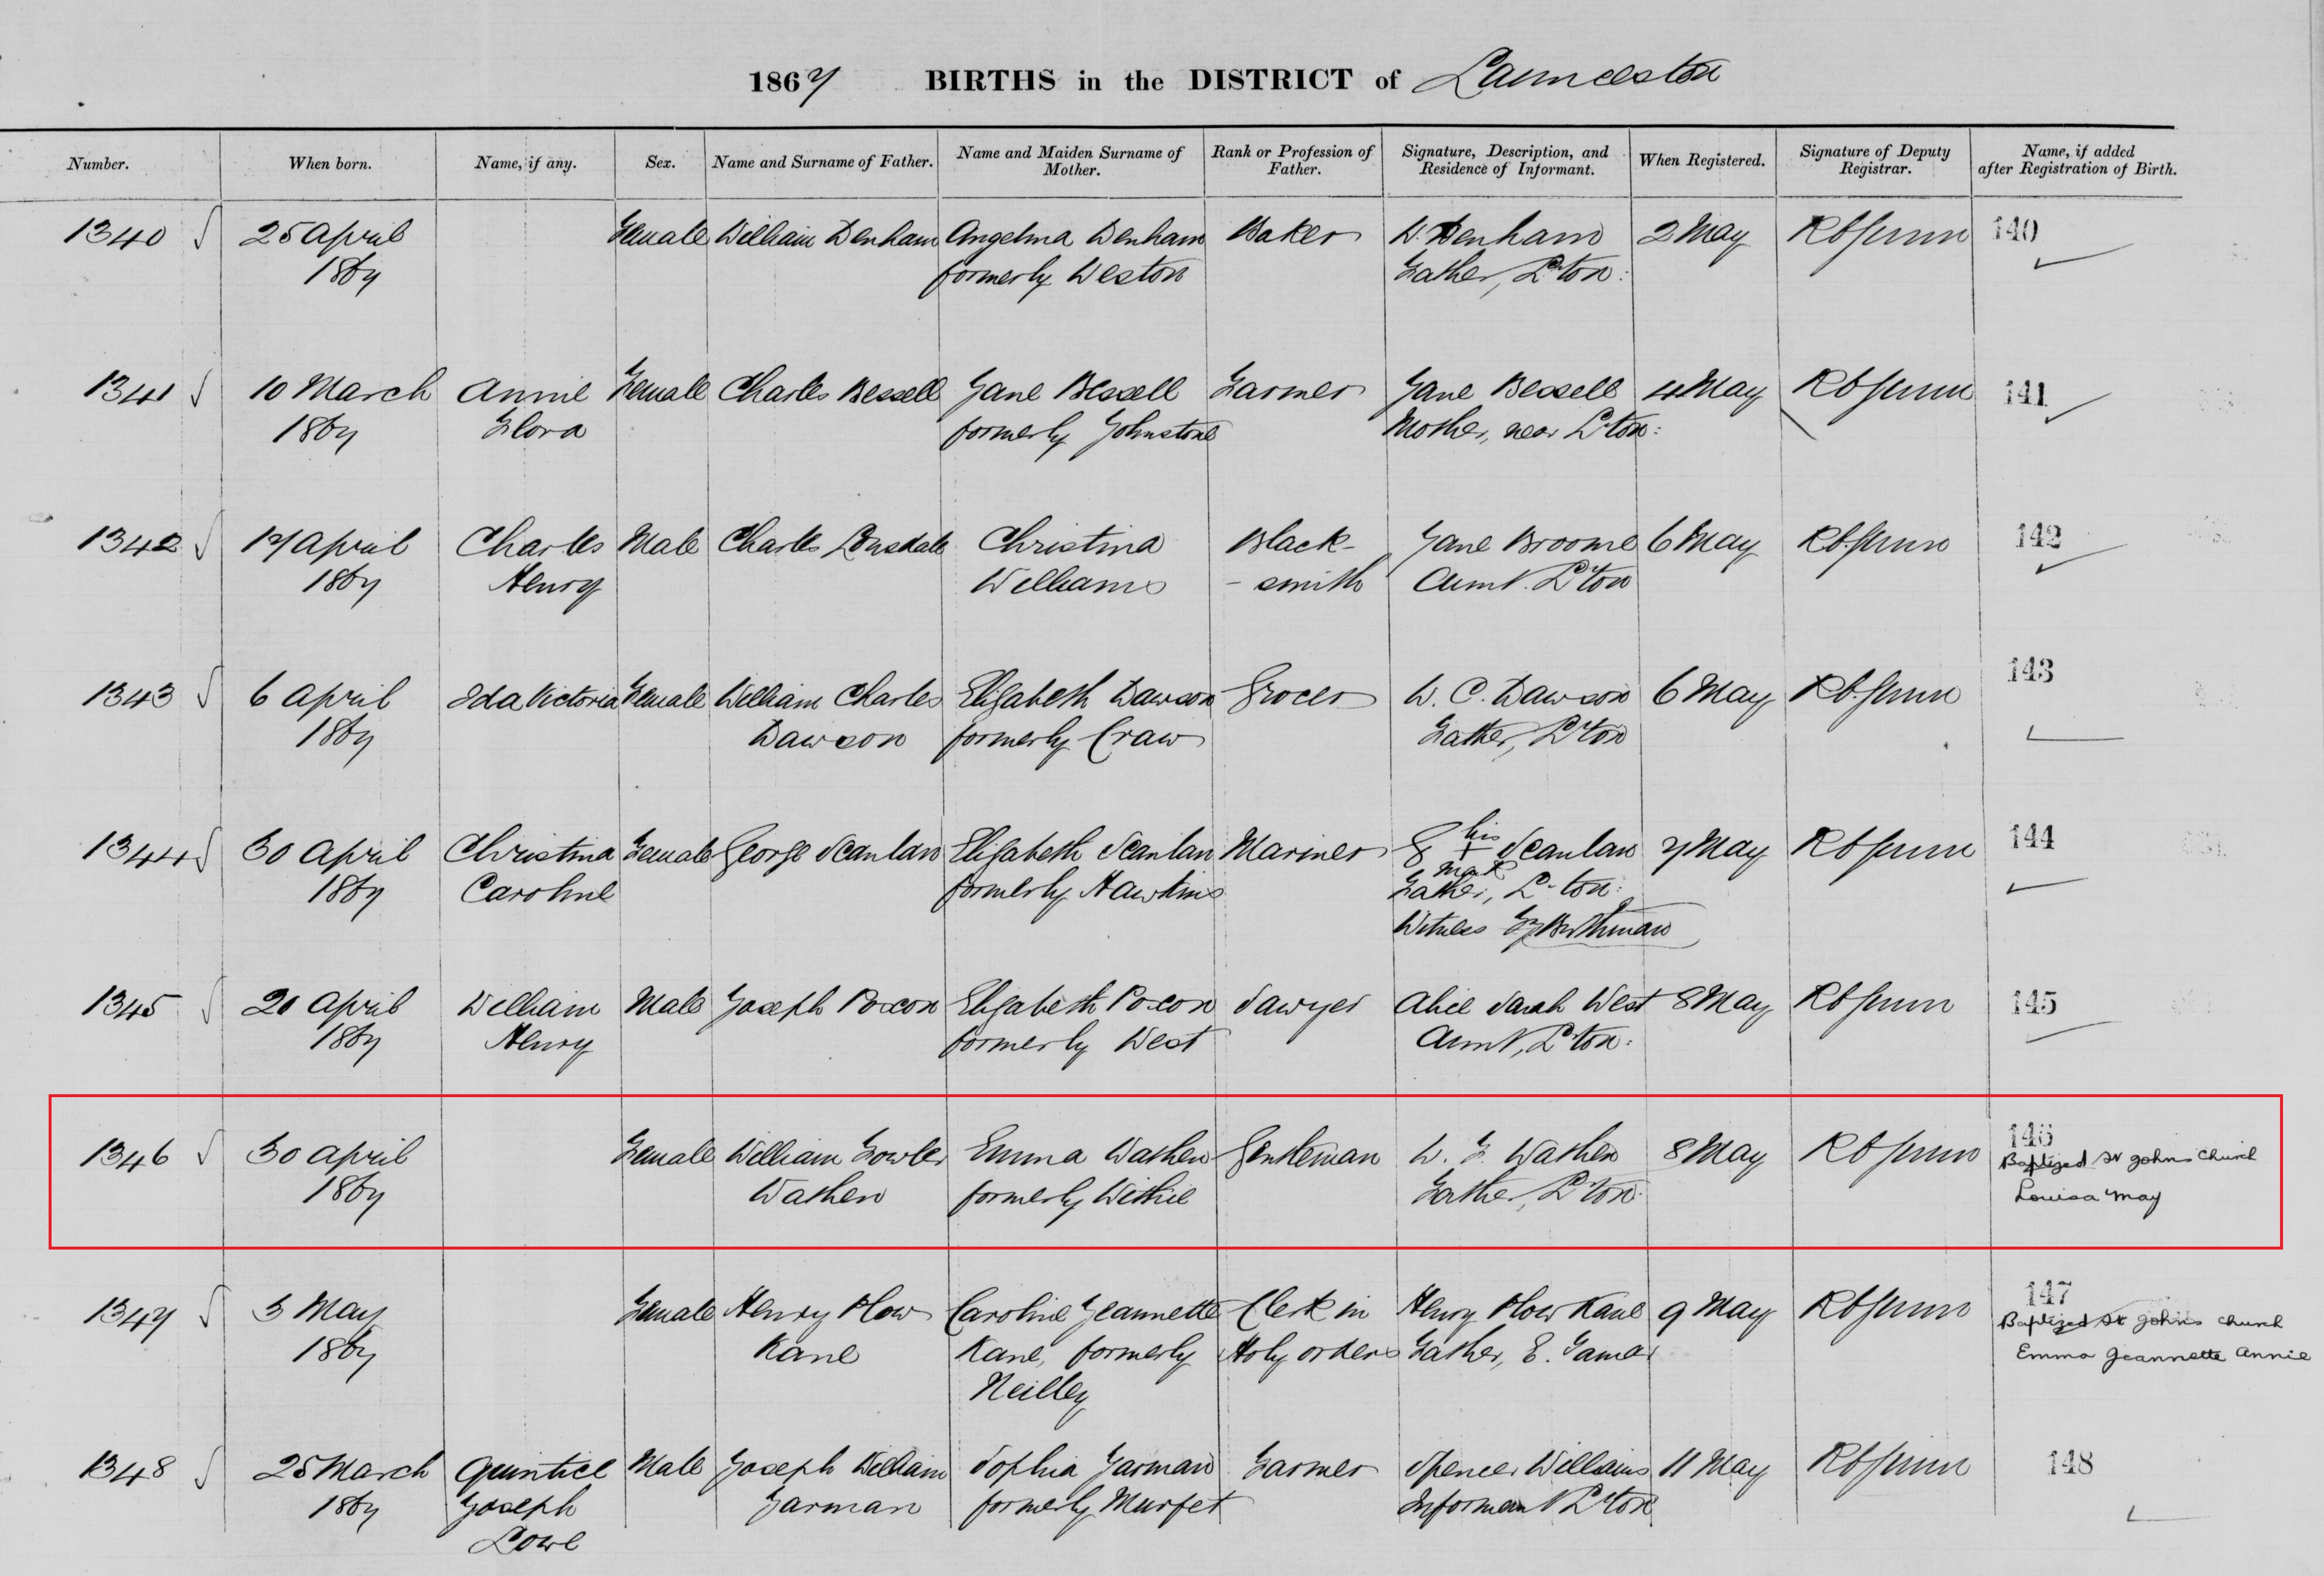 1867 BIRTHS in the DISTRICT of Launceston
Number. When born. Name, if any. Sex. Name and Surname of Father. Name and Maiden Surname of Mother. Rank or Profession of Father. Signature, Description, and Residence of Informant. When Registered. Signature of Deputy Registrar. Name, if added after Registration of Birth.
1340 25 April Female William Denham Angelina Denham Baker W. Denham 2 May 140
1867 formerly Weston Father, L'ton:
1341 10 March Annie Female Charles Bessell Jane Bessell Farmer Jane Bessell 4 May 141
1867 Flora formerly Johnstone Mother, near L'ton:
1342 17 April Charles Male Charles Lonsdale Christina Black- Jane Broome 6 May 142
1867 Henry Williams - smith Aunt. L'ton
1343 6 April Ida Victoria Female William Charles Elizabeth Dawson Grocer W. C. Dawson 6 May 143
1867 Dawson formerly Craw Father, L'ton
1344 30 April Christina Female George Scanlan Elizabeth Scanlan Mariner G his + mark Scanlan 7 May 144
1867 Caroline formerly Hawkins Father, L'ton:
Witness
1345 20 April William Male Joseph Poxon Elizabeth Poxon Sawyer Alice Sarah West 8 May 145
1867 Henry formerly West Aunt, L'ton:
1346 30 April Female William Fowler Emma Wathen Gentleman W. F. Wathen 8 May 146
Baptized St Johns Church
1867 Wathen formerly Withie Father, L'ton:
Louisa May
1347 3 May Female Henry Plow Caroline Jeannette Clerk in Henry Plow Kane 9 May 147
Baptized St Johns Church
1867 Kane Kane, formerly Holy orders Father, E. Tamar
Emma Jeannette Annie
Neilley
1348 25 March Quintice Male Joseph William Sophia Jarman Farmer Spencer Williams 11 May 148
1867 Joseph Jarman formerly Murfet Informant L'ton
Lowe